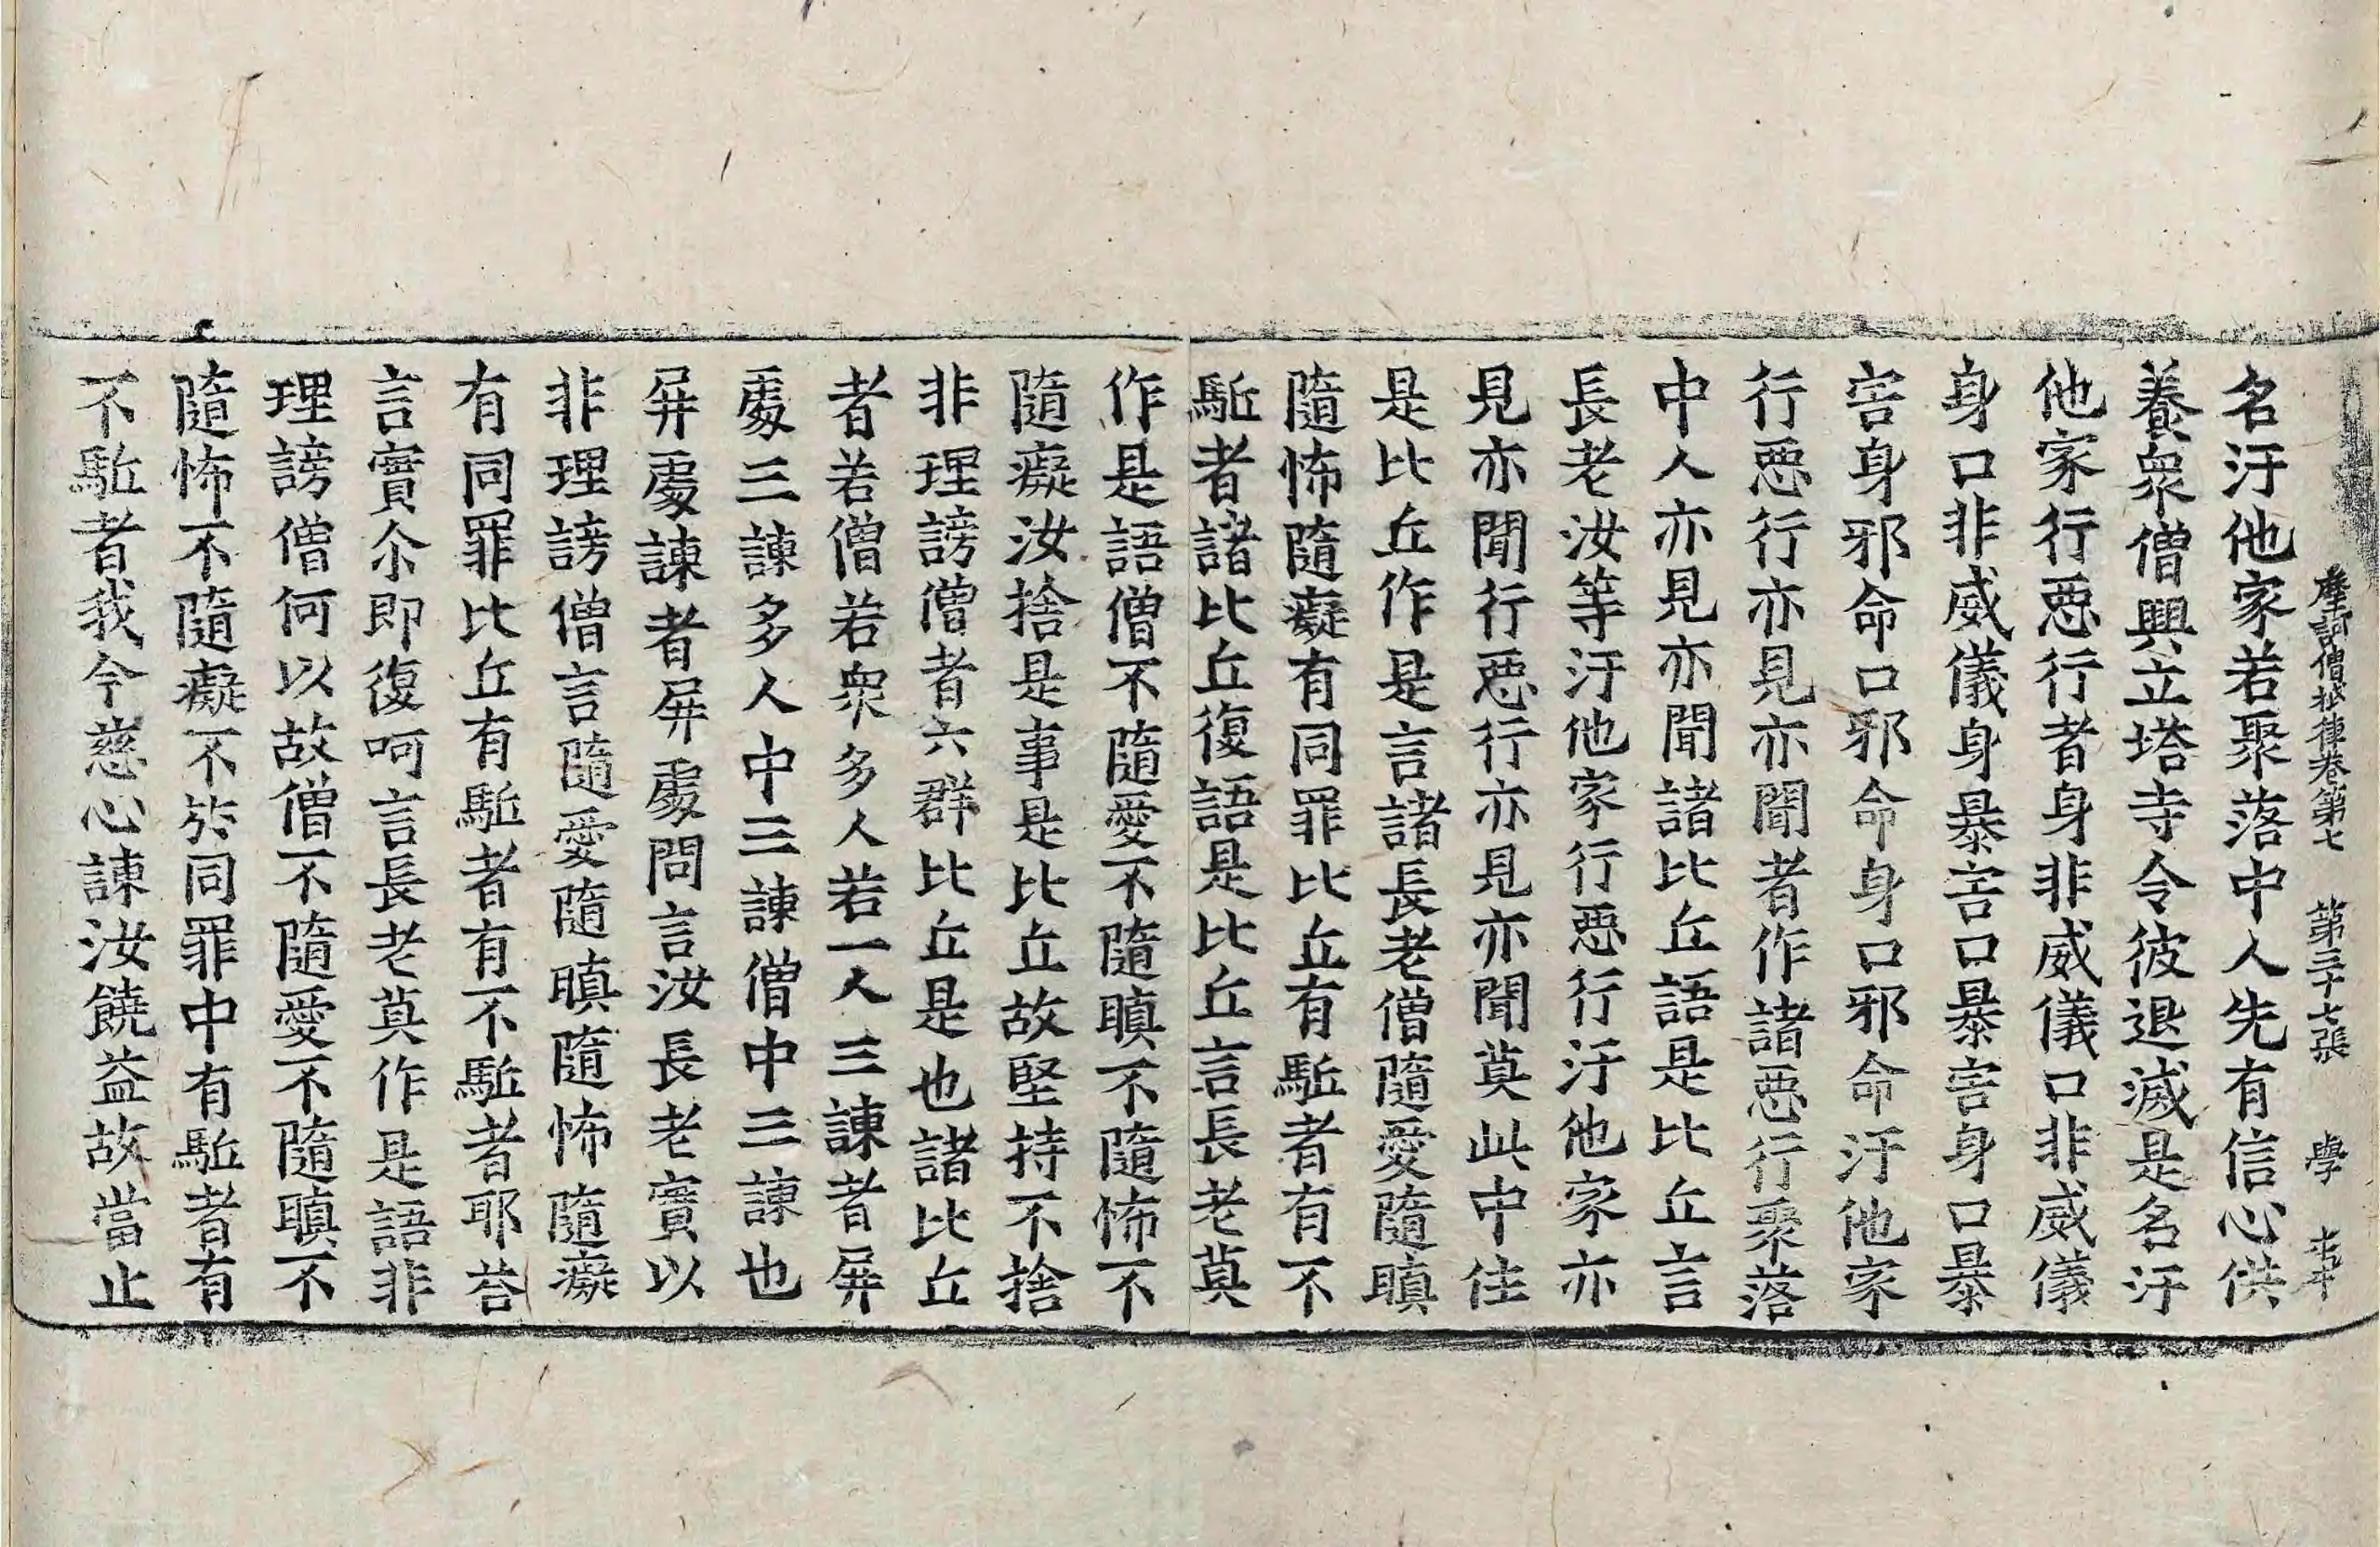 摩訶僧祇律卷第七 第三十七張 學
名汙他家若聚落中人先有信心供
養衆僧興立塔寺令彼退滅是名汙
他家行惡行者身非威儀口非威儀
身口非威儀身暴害口暴害身口暴
害身邪命口邪命身口邪命汙他家
行惡行亦見亦聞者作諸惡行聚落
中人亦見亦聞諸比丘語是比丘言
長老汝等汙他家行惡行汙他家亦
見亦聞行惡行亦見亦聞莫此中住
是比丘作是言諸長老僧隨愛隨瞋
隨怖隨癡有同罪比丘有駈者有不
駈者諸比丘復語是比丘言長老莫
作是語僧不隨愛不隨瞋不隨怖不
隨癡汝捨是事是比丘故堅持不捨
非理謗僧者六群比丘是也諸比丘
者若僧若衆多人若一人三諫者屏
處三諫多人中三諫僧中三諫也
屏處諫者屏處問言汝長老實以
非理謗僧言隨愛隨瞋隨怖隨癡
有同罪比丘有駈者有不駈者耶荅
言實尒即復呵言長老莫作是語非
理謗僧何以故僧不隨愛不隨瞋不
隨怖不隨癡不於同罪中有駈者有
不駈者我今慈心諫汝饒益故當止